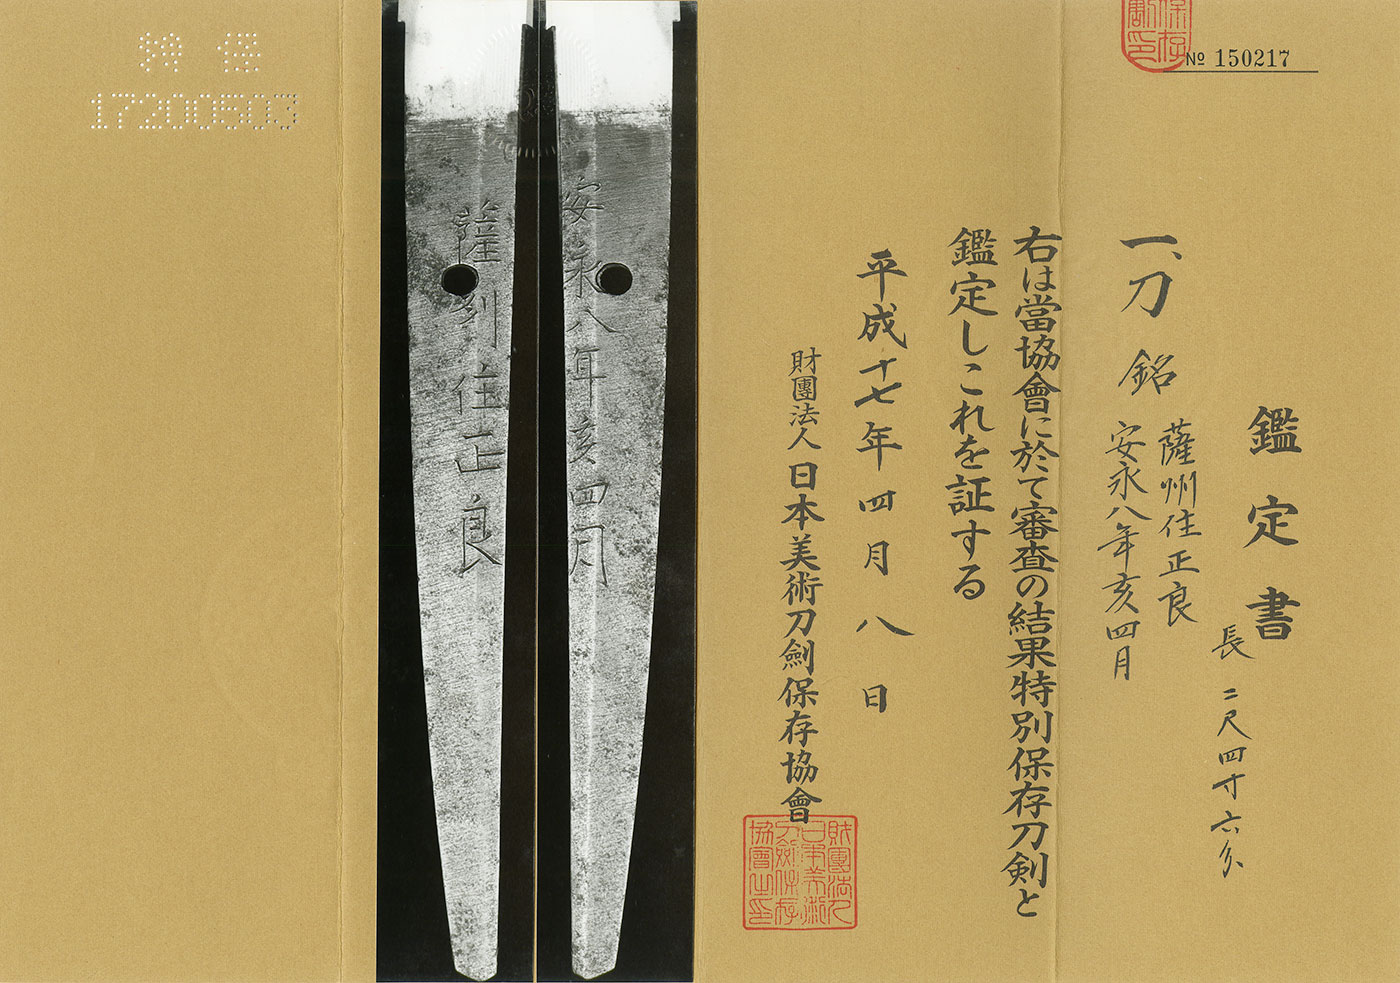 № 150217
鑑定書
一、刀 銘 薩州住正良
安永八年亥四月
長二尺四寸六分
右は當協會に於て審査の結果特別保存刀剣と
鑑定しこれを証する
平成十七年四月八日
財團法人日本美術刀劍保存協會
財團法人日本美術刀劍保存協會之印
安永八年亥四月
薩刕住正良
17200503